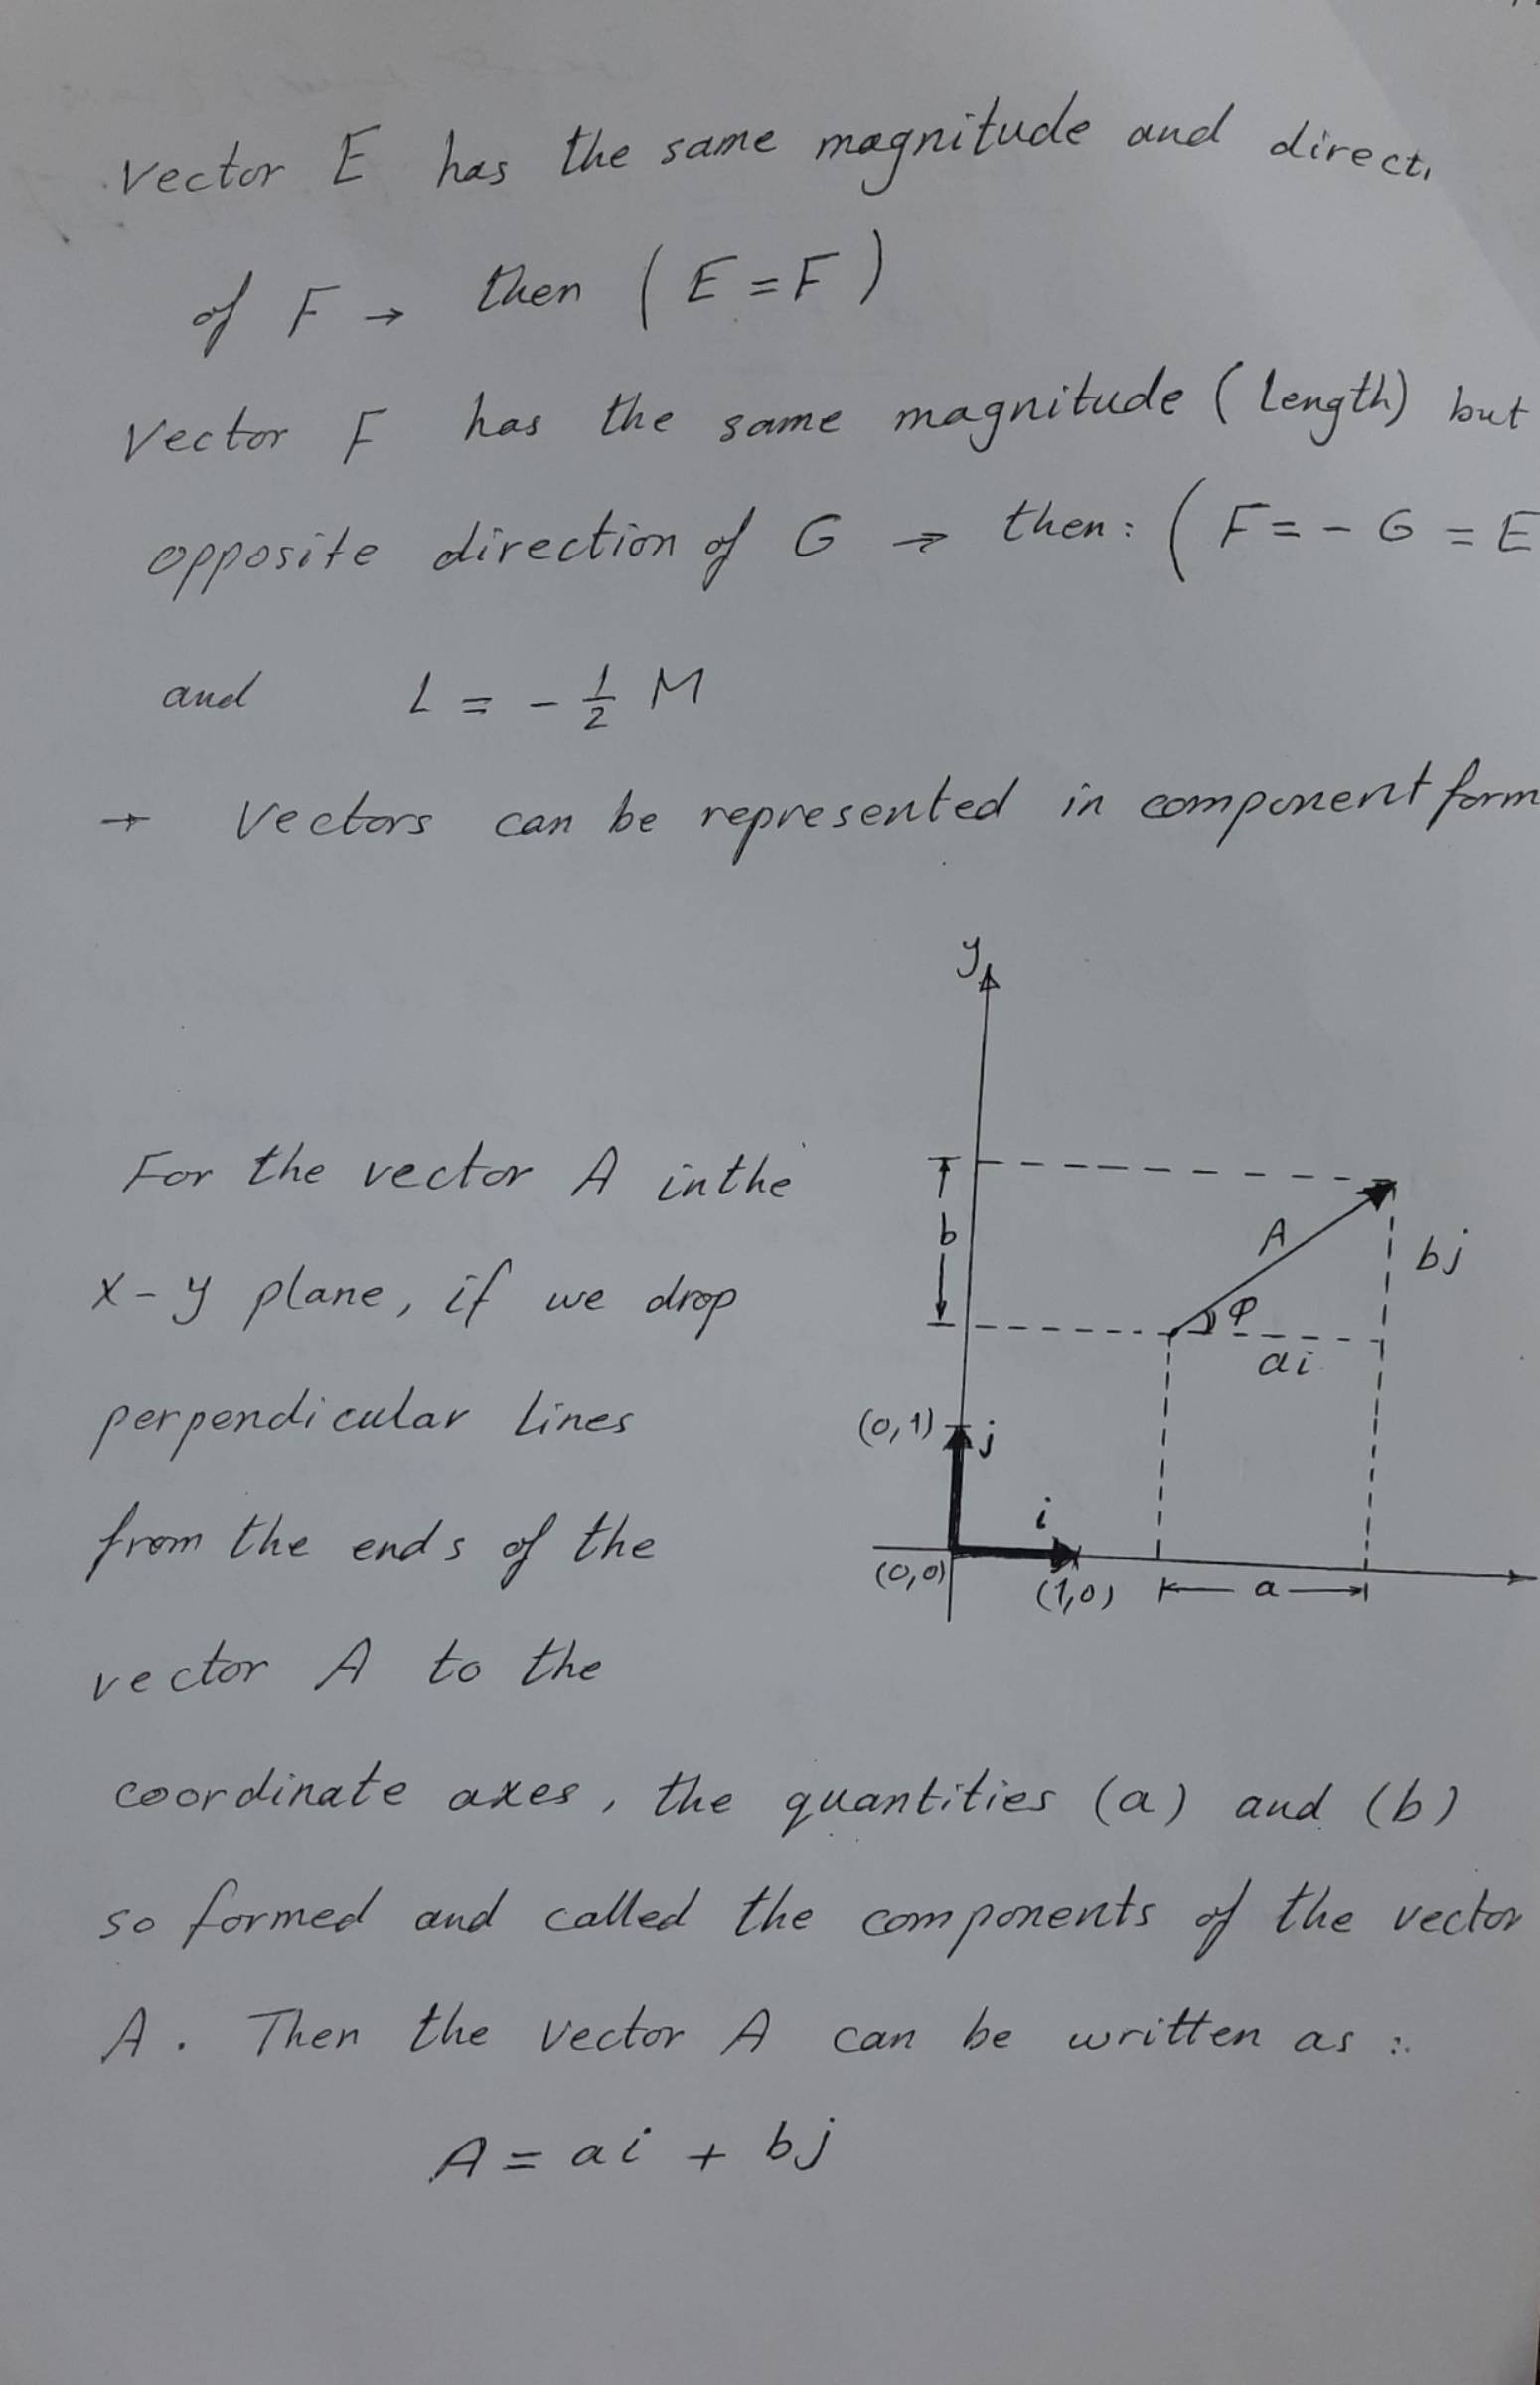 Vector E has the same magnitude and direct
of F → then (E = F)
Vector F has the same magnitude (length) but
opposite direction of G → then: (F = - G = E
and L = - 1/2 M
→ Vectors can be represented in component form
y
For the vector A in the
x-y plane, if we drop
perpendicular lines
from the ends of the
vector A to the
b
A
bj
φ
ai
(0,1)
j
i
(0,0)
(1,0)
a
coordinate axes, the quantities (a) and (b)
so formed and called the components of the vector
A. Then the vector A can be written as :.
A = ai + bj